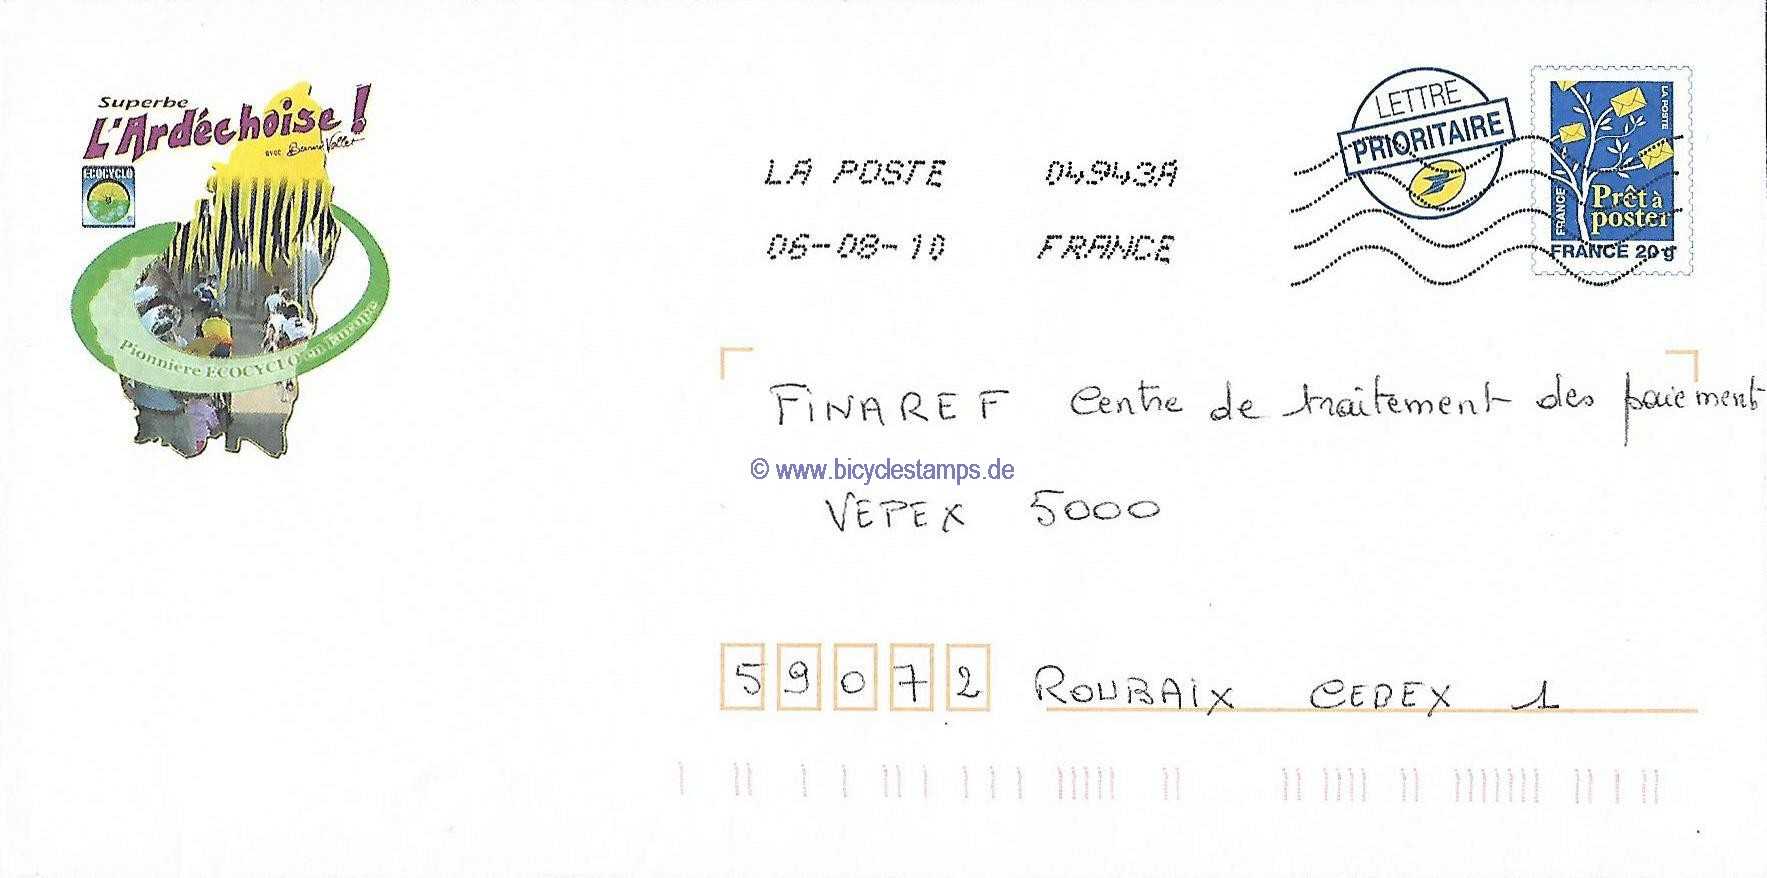 Superbe
L'Ardéchoise !
avec Bernard Vallet
ECOCYCLO
Pionnière ECOCYCLO en Europe
LA POSTE 04943A
06-08-10 FRANCE
LETTRE
PRIORITAIRE
LA POSTE
FRANCE
Prêt à
poster
FRANCE 20 g
FINAREF Centre de traitement des paiement
© www.bicyclestamps.de
VEPEX 5000
59072 ROUBAIX CEDEX 1